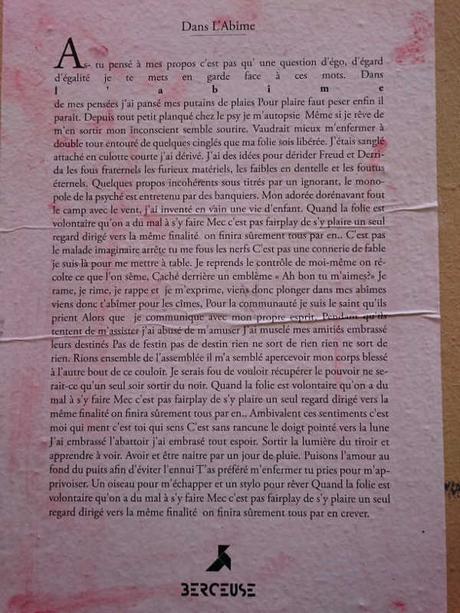 Dans L'Abîme
As- tu pensé à mes propos c'est pas qu' une question d'égo, d'égard
d'égalité je te mets en garde face à ces mots. Dans
l'abime
de mes pensées j'ai pansé mes putains de plaies Pour plaire faut peser enfin il
paraît. Depuis tout petit planqué chez le psy je m'autopsie Même si je rêve de
m'en sortir mon inconscient semble sourire. Vaudrait mieux m'enfermer à
double tour entouré de quelques cinglés que ma folie sois libérée. J'étais sanglé
attaché en culotte courte j'ai dérivé. J'ai des idées pour dérider Freud et Derri-
da les fous fraternels les furieux matériels, les faibles en dentelle et les foutus
éternels. Quelques propos incohérents sous titrés par un ignorant, le mono-
pole de la psyché est entretenu par des banquiers. Mon adorée dorénavant fout
le camp avec le vent, j'ai inventé en vain une vie d'enfant. Quand la folie est
volontaire qu'on a du mal à s'y faire Mec c'est pas fairplay de s'y plaire un seul
regard dirigé vers la même finalité on finira sûrement tous par en.. C'est pas
le malade imaginaire arrête tu me fous les nerfs C'est pas une connerie de fable
je suis là pour me mettre à table. Je reprends le contrôle de moi-même on ré-
colte ce que l'on sème. Caché derrière un emblème « Ah bon tu m'aimes?» Je
rame, je rime, je rappe et je m'exprime, viens donc plonger dans mes abîmes
viens donc t'abîmer pour les cîmes. Pour la communauté je suis le saint qu'ils
prient Alors que je communique avec mon propre esprit. Pendant qu'ils
tentent de m'assister j'ai abusé de m'amuser J'ai muselé mes amitiés embrassé
leurs destinés Pas de festin pas de destin rien ne sort de rien rien ne sort de
rien. Rions ensemble de l'assemblée il m'a semblé apercevoir mon corps blessé
à l'autre bout de ce couloir. Je serais fou de vouloir récupérer le pouvoir ne se-
rait-ce qu'un seul soir sortir du noir. Quand la folie est volontaire qu'on a du
mal à s'y faire Mec c'est pas fairplay de s'y plaire un seul regard dirigé vers la
même finalité on finira sûrement tous par en.. Ambivalent ces sentiments c'est
moi qui ment c'est toi qui sens C'est sans rancune le doigt pointé vers la lune
J'ai embrassé l'abattoir j'ai embrasé tout espoir. Sortir la lumière du tiroir et
apprendre à voir. Avoir et être naitre par un jour de pluie. Puisons l'amour au
fond du puits afin d'éviter l'ennui T'as préféré m'enfermer tu pries pour m'ap-
privoiser. Un oiseau pour m'échapper et un stylo pour rêver Quand la folie est
volontaire qu'on a du mal à s'y faire Mec c'est pas fairplay de s'y plaire un seul
regard dirigé vers la même finalité on finira sûrement tous par en crever.
BERCEUSE